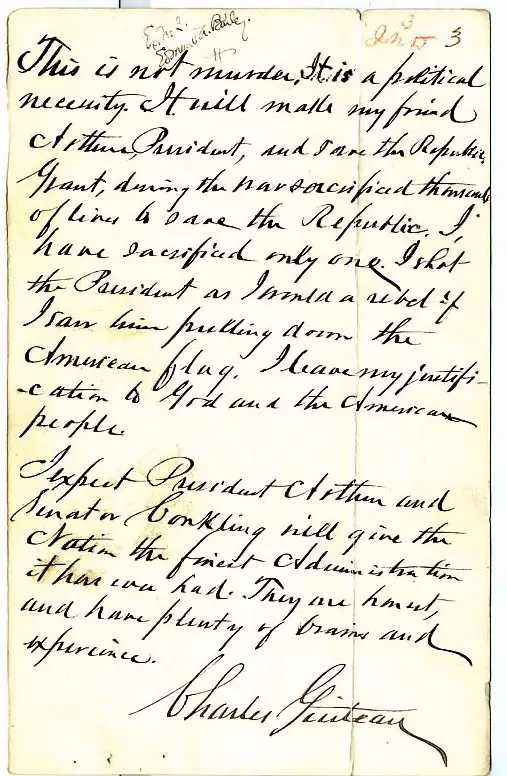 3
3
This is not murder. It is a political
necessity. It will make my friend
Arthur President, and save the Republic.
Grant, during the war sacrificed thousands
of lives to save the Republic. I
have sacrificed only one. I shot
the President as I would a rebel if
I saw him pulling down the
American flag. I leave my justifi-
-cation to God and the American
people.
I expect President Arthur and
Senator Conkling will give the
Nation the finest Administration
it has ever had. They are honest,
and have plenty of brains and
experience.
Charles Guiteau